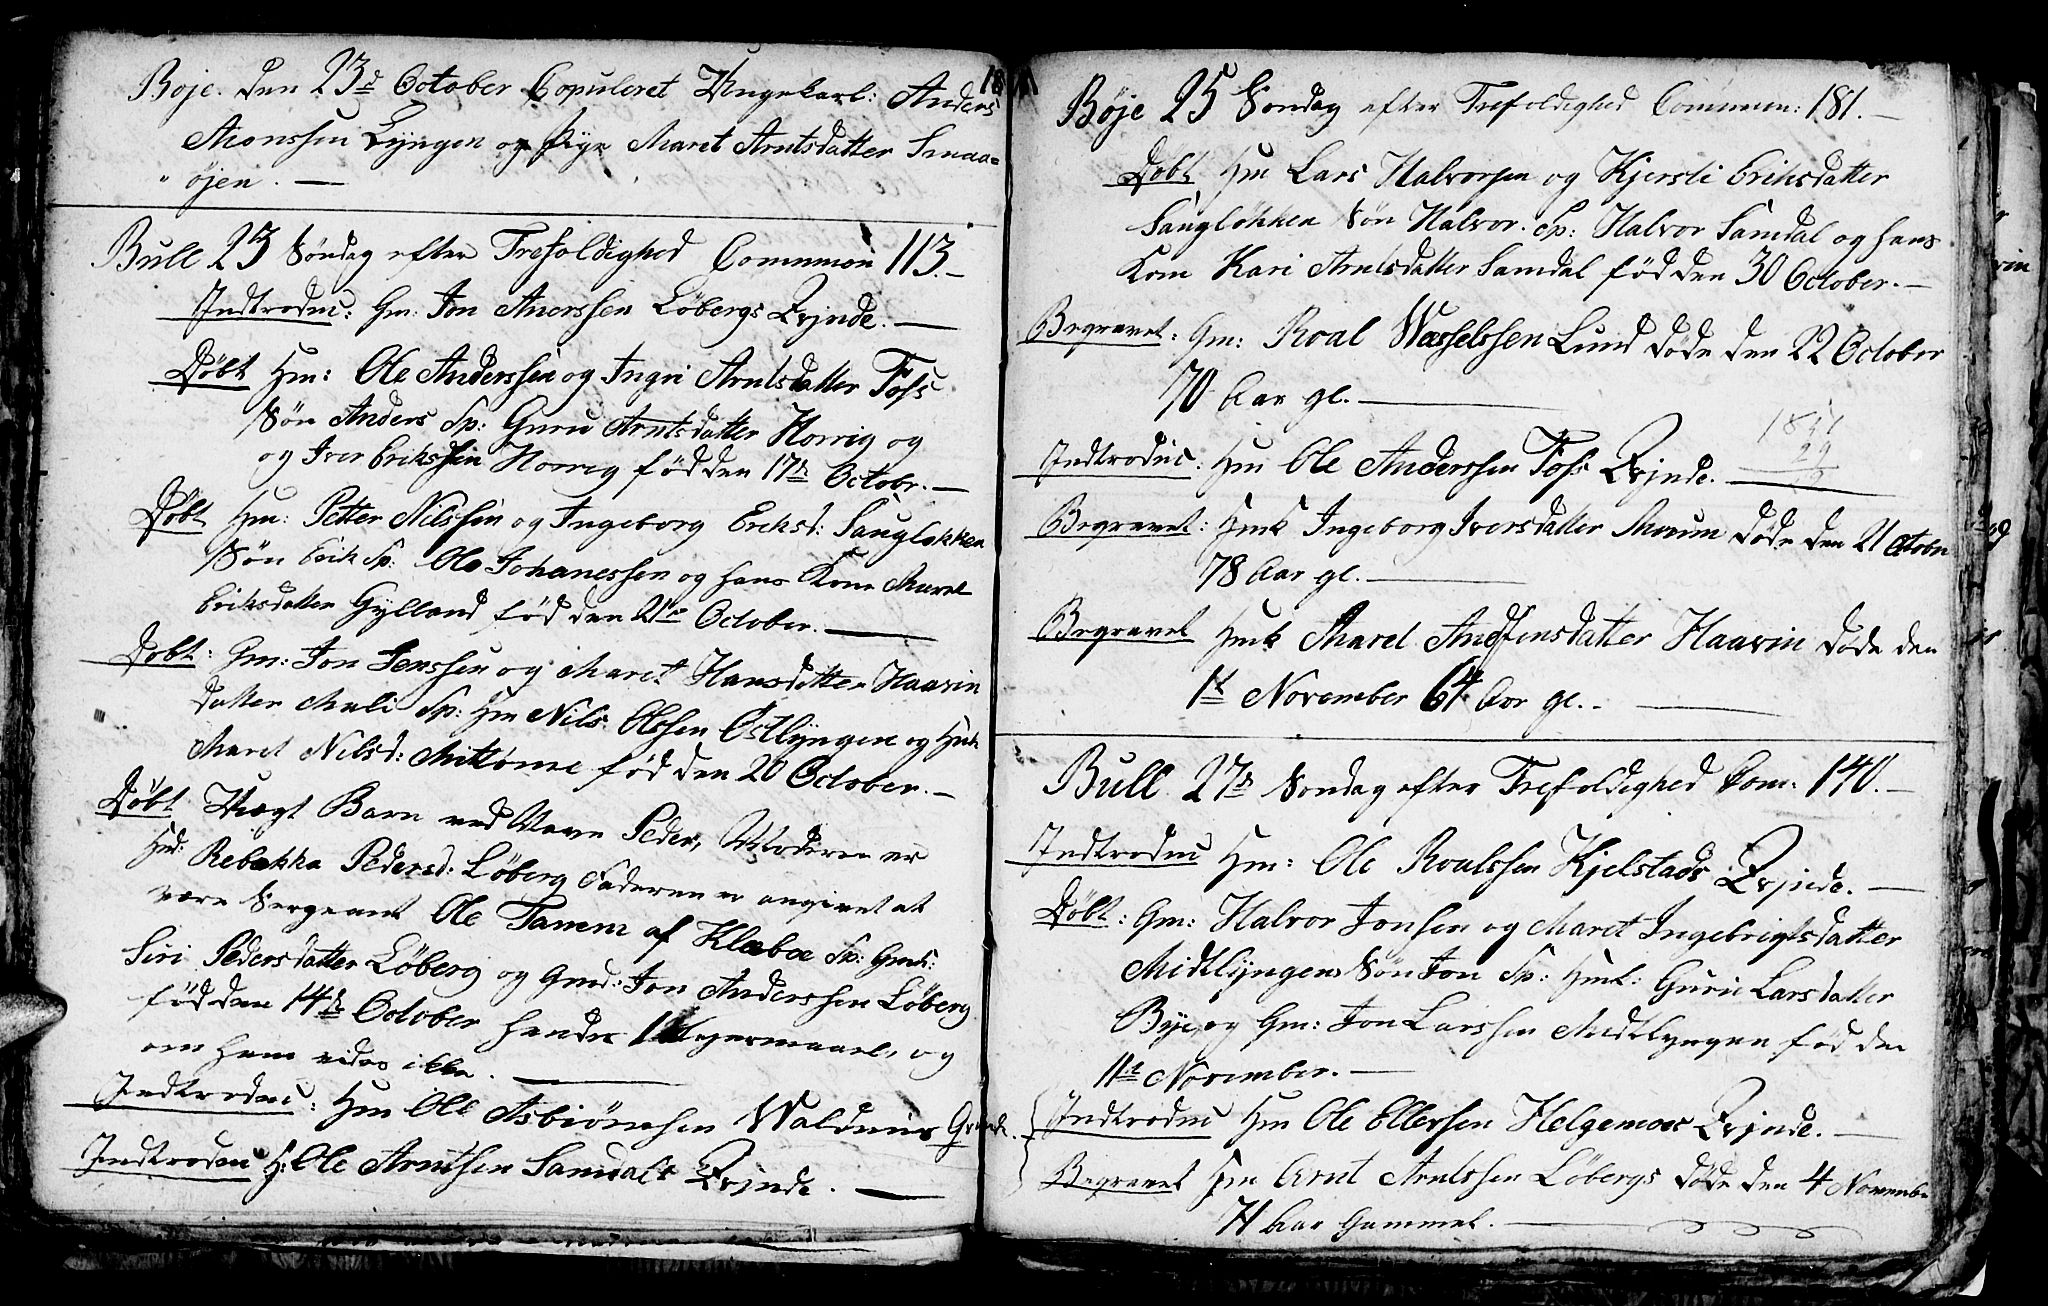 Böje. den 23d October Copuleret Ungekarl: Anders
Monssen Lyngen og Pige Maret Arntsdatter Smaa=
" øjen. —
Bull 23 Søndag efter Trefoldighed Commun 113. —
Indtroduc: Gm: Jon Anerssen Løbergs Qvinde. —
Døbt Hm: Ole Anderssen og Ingri Arntsdatter Foss
Søn Anders Sp: Guru Arntsdatter Horrig og
og Iver Erikssen Horreg fød den 17de Octobr. —
Døbt Hm: Petter Nilssen og Ingeborg Eriksd: Sangløkken
Søn Erik Sp: Ole Johanessen og hans Kone Maret
Eriksdatter Gylland fød den 21de October. —
Døbt: Gm: Jon Jenssen og Maret Hansdatter Haavin
datter Mali Sp: Hm Nils Olssen Østlyngen og Hmk
Maret Nilsd: fød den 20 October. —
Døbt Uægt Barn ved Navn Peder, Moderen er
Hmd: Rebekka Pedersd: Løberg Faderen er angivet at
være Sergeant Ole Tamm af Klæboe Sp: Gmk:
Siri Pedersdatter Løberg og Gmd: Jon Anderssen Løberg
fød den 14de October hendes 1t Lejermaael, og
om ham vides ikke. —
Indtroduc: Hm Ole Asbiørnsen Qvinde.
Indtroduc H: Ole Arntsen Samdals Qvinde. —
Böje 25 Søndag efter Trefoldighed Commun: 181. —
Døbt Hm Lars Halvorsen og Kjersti Eriksdatter
Sangløkken Søn Halvor. Sp: Halvor Samdal og hans
Kone Kari Arntsdatter Samdal fød den 30 October. —
Begravet: Gm: Roal Wesselssen Lund døde den 22 October
70 Aar gl. —
Indtroduc: Hm Ole Anderssen Foss Qvinde. —
29
Begravet: Hmk Ingeborg Iversdatter Moum døde den 21 Octobr
78 Aar gl. —
Begravet Hmk Maret Andfinsdatter Haavin døde den
1t November 64 Aar gl. —
Bull 27de Søndag efter Trefoldighed Com: 140. —
Indtroduc Hm: Ole Roalssen Kjelstads Qvinde. —
Døbt: Gm: Halvor Jonsen og Maret Ingebrigtsdatter
Midtlyngens Søn Jon Sp: Hmk: Guru Larsdatter
Bye, og Gm: Jon Larssen Midtlyngen fød den
11te November. —
Indtroduc Hm Ole Ellefsen Helgemoes Qvinde. —
Begravet Hm Arnt Arntssen Løbergs døde den 4 Novembr
71 Aar Gammel. —